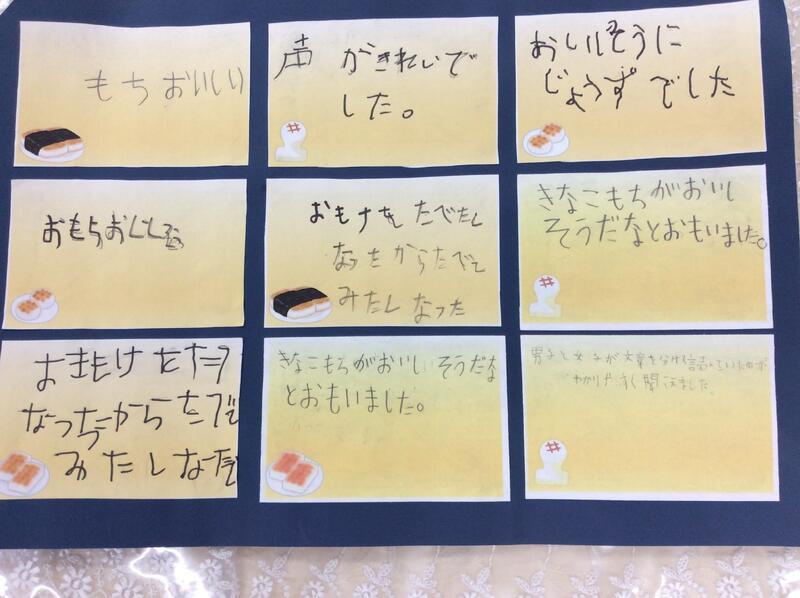 もちおいしい
声がきれいで
した。
おいしそうに
じょうずでした
おもちおしし
おもけをたべたし
なったからたべて
みたしなった
きなこもちがおいし
そうだなとおもいました。
なっちからたべて
みたしなった
きなこもちがおいしそうだな
とおもいました。
男子と女子が文章を分けて読んでいたのが
わかりやすく聞けました。